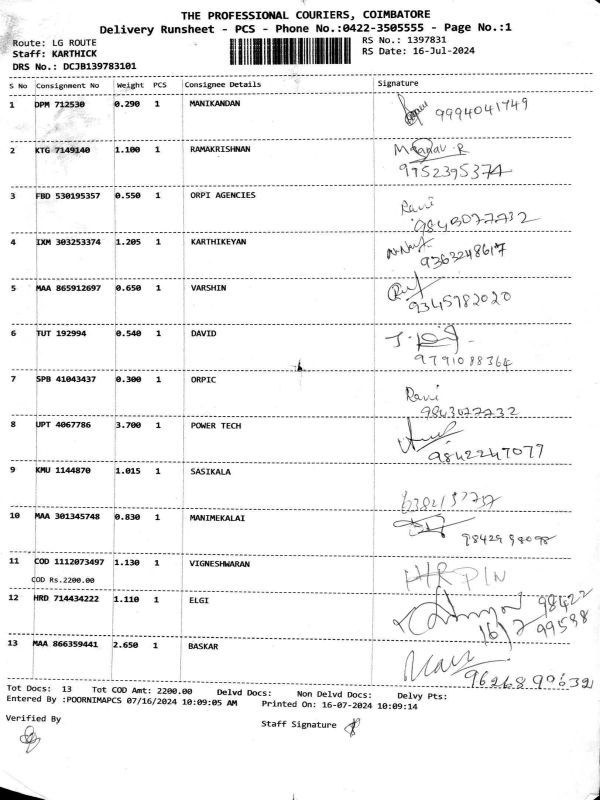 THE PROFESSIONAL COURIERS, COIMBATORE
Delivery Runsheet - PCS - Phone No.:0422-3505555 - Page No.:1
Route: LG ROUTE RS No.: 1397831
Staff: KARTHICK RS Date: 16-Jul-2024
DRS No.: DCJB139783101
S No Consignment No Weight PCS Consignee Details Signature
1 DPM 712530 0.290 1 MANIKANDAN
9994041749
2 KTG 7149140 1.100 1 RAMAKRISHNAN
9952395374
3 FBD 530195357 0.550 1 ORPI AGENCIES
Ravi
9843077732
4 IXM 303253374 1.205 1 KARTHIKEYAN
9363248617
5 MAA 865912697 0.650 1 VARSHIN
9345782020
6 TUT 192994 0.540 1 DAVID
9791088364
7 SPB 41043437 0.300 1 ORPIC
Ravi
9843077732
8 UPT 4067786 3.700 1 POWER TECH
9842247077
9 KMU 1144870 1.015 1 SASIKALA
10 MAA 301345748 0.830 1 MANIMEKALAI
11 COD 1112073497 1.130 1 VIGNESHWARAN
COD Rs.2200.00
12 HRD 714434222 1.110 1 ELGI
98422
99538
16/7
13 MAA 866359441 2.650 1 BASKAR
9626899632
Tot Docs: 13 Tot COD Amt: 2200.00 Delvd Docs: Non Delvd Docs: Delvy Pts:
Entered By :POORNIMAPCS 07/16/2024 10:09:05 AM Printed On: 16-07-2024 10:09:14
Verified By Staff Signature